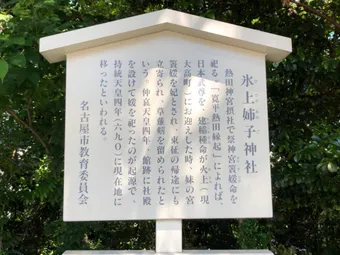 氷上姉子神社
熱田神宮摂社で祭神宮簀媛命を
祀る。「寛平熱田縁起」によれば、
日本武尊を、建稲種命が火上(現
大高町)にお迎えした時、妹の宮
簀媛を妃とされ、東征の帰途にも
立寄られ、草薙剣を留められたと
いう。仲哀天皇四年、館跡に社殿
を設けて媛を祀ったのが起源で、
持統天皇四年(六九〇)に現在地に
移ったといわれる。
名古屋市教育委員会